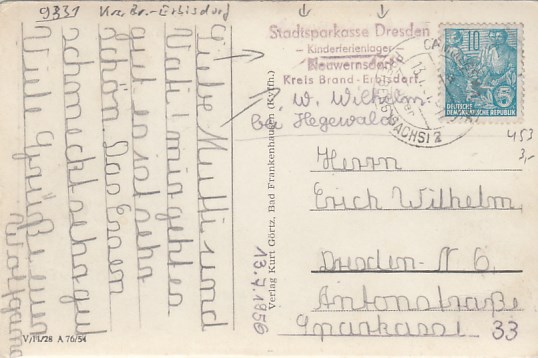 9331 Krs. Br.-Erbisdorf
Liebe Mutti und
Vati! mir geht es
gut es ist sehr
schön. Das Essen
schmeckt sehr gut
Viele Grüße euer
Wolfgang
V/11/28 A 76/54
Verlag Kurt Görtz, Bad Frankenhausen (Kyffh.)
13.7.1956
Stadtsparkasse Dresden
- Kinderferienlager -
Neuwernsdorf
Kreis Brand-Erbisdorf
W. Wilhelm
bei Hegewald
(SACHS) 2
10
5
DEUTSCHE
DEMOKRATISCHE REPUBLIK
453
3,-
Herrn
Erich Wilhelm
Dresden-N 6.
Antonstraße
Sparkasse 33